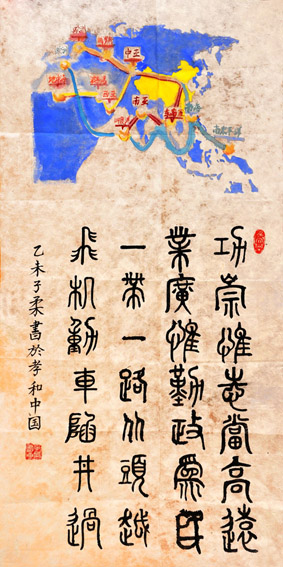 中亚
西亚
南亚
南太平洋
功崇惟志當高遠
業廣惟勤政為民
一帶一路从頭越
飛机動車陷阱過
乙未子柔書於孝和中国